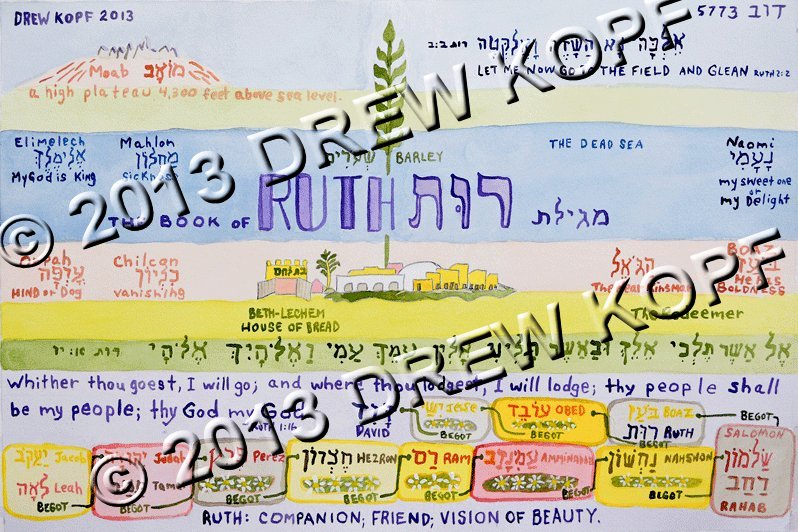 DREW KOPF 2013
5773 דוב
אֵלְכָה נָּא הַשָּׂדֶה וַאֲלַקֳטָה רות ב:ב
LET ME NOW GO TO THE FIELD AND GLEAN RUTH 2:2
Moab מוֹאָב
a high plateau 4,300 feet above sea level.
© 2013 DREW KOPF
Elimelech
אֱלִימֶלֶךְ
My God is King
Mahlon
מַחְלוֹן
Sickness
שְׂעֹרִים BARLEY
THE DEAD SEA
Naomi
נָעֳמִי
my sweet one
or
my Delight
THE BOOK OF RUTH רוּת מגילת
Orpah
עָרְפָּה
HIND or Dog
Chileon
כִּלְיוֹן
vanishing
בית לחם
BETH-LECHEM
HOUSE OF BREAD
הַגֹּאֵל
The near Kinsman
The Redeemer
BOAZ
בֹּעַז
He is
BOLDNESS
© 2013 DREW KOPF
אֶל אֲשֶׁר תֵּלְכִי אֵלֵךְ וּבַאֲשֶׁר תָּלִינִי אָלִין עַמֵּךְ עַמִּי וֵאלֹהַיִךְ אֱלֹהָי
Whither thou goest, I will go; and where thou lodgest, I will lodge; thy people shall
be my people; thy God my God. RUTH 1:16
דָּוִד
DAVID
יִשַׁי Jesse
BEGOT
עוֹבֵד OBED
BEGOT
בֹּעַז BOAZ
רוּת RUTH
BEGOT
BEGOT
SALOMON
שַׂלְמוֹן
רָחָב
RAHAB
יַעֲקֹב Jacob
לֵאָה Leah
BEGOT
יְהוּדָה Judah
תָּמָר Tamar
BEGOT
פֶּרֶץ Perez
BEGOT
חֶצְרוֹן HEZRON
BEGOT
רָם RAM
BEGOT
עַמִּינָדָב AMMINADAB
BEGOT
נַחְשׁוֹן NAHSHON
BEGOT
RUTH: COMPANION; FRIEND; VISION OF BEAUTY.